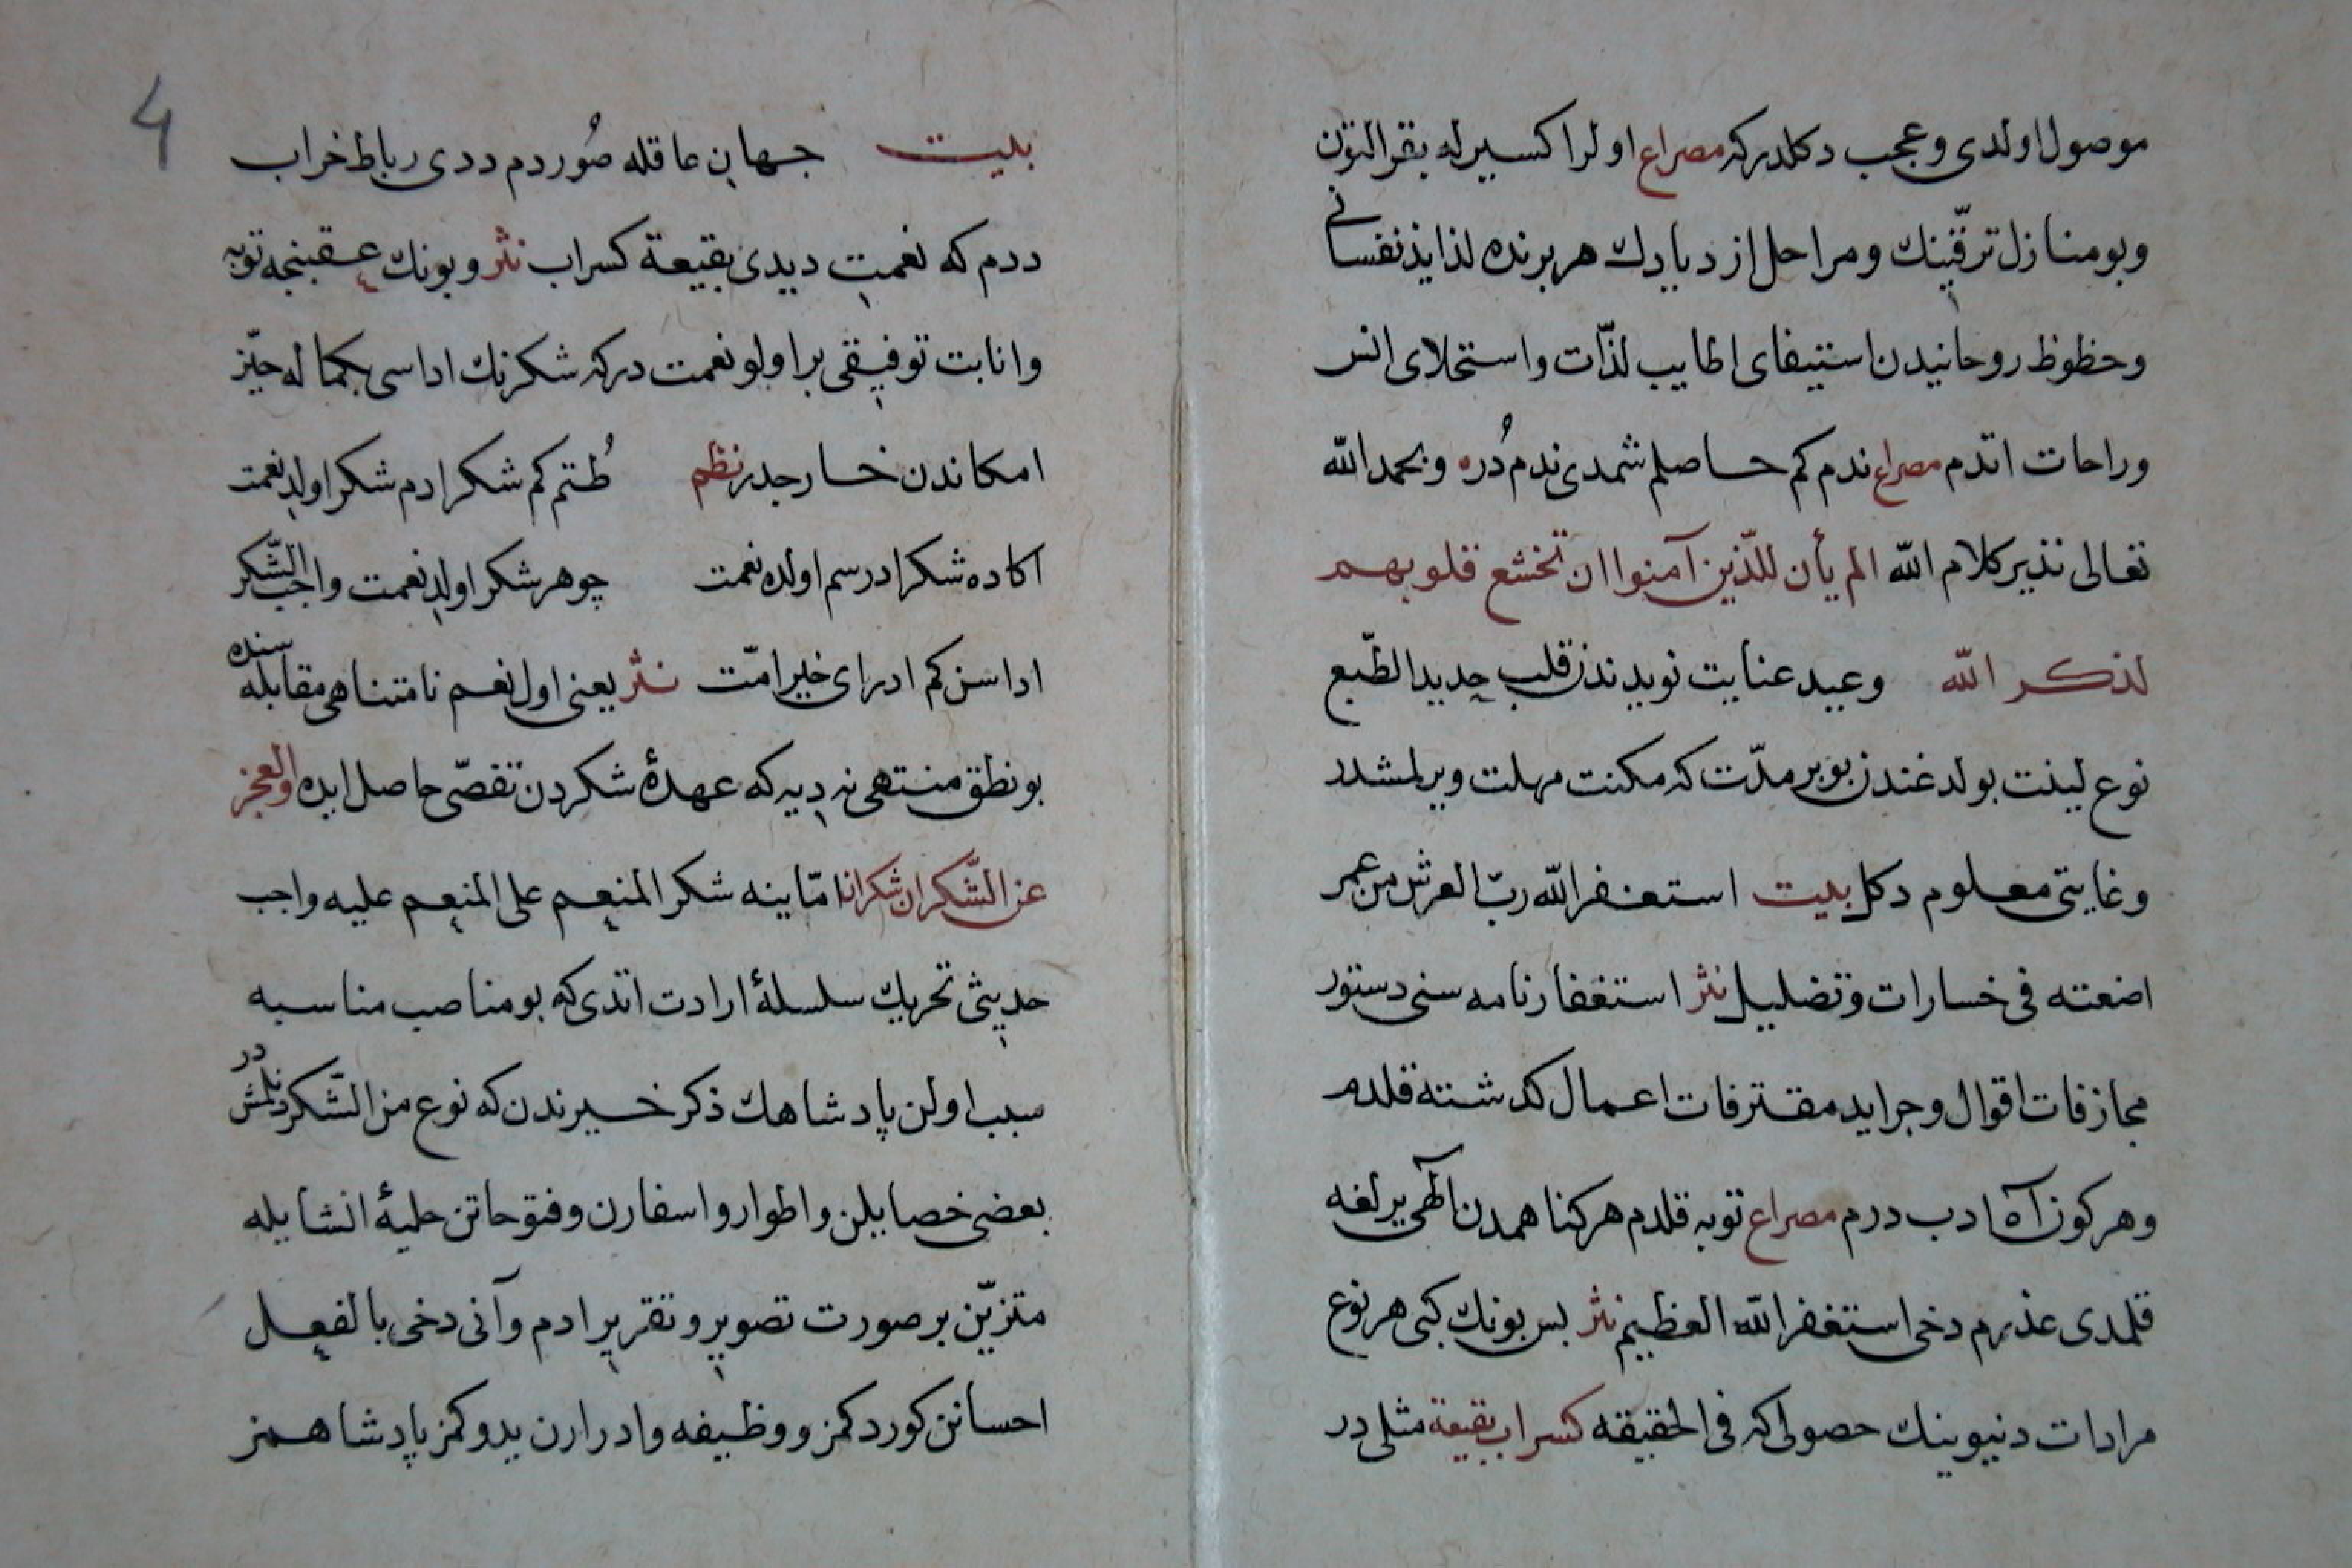 موصول اولدى وعجب دكلدركه مصراع اولر اكسيرله بقر التون
وبو منازل ترقّينك ومراحل ازديادك هر برنده لذايذ نفسانى
وحظوظ روحانيدن استيفاى اطايب لذّات واستحلاى انس
وراحات اتدم مصراع ندم كم حاصلم شمدى ندم دُره وبحمد الله
تعالى نذير كلام الله الم يأن للّذين آمنوا ان تخشع قلوبهم
لذكر الله وعيد عنايت نويدندن قلب حديد الطّبع
نوع لينت بولدغندن بو بر مدّت كه مكنت مهلت ويرلمشدر
وغايتى معلوم دكل بيت استغفر الله ربّ العرش من عمر
اضعته فى خسارات وتضليل نثر استغفارنامه سنى دستور
مجازفات اقوال وجرايد مقترفات اعمال كذشته قلدم
وهر كون آه ادب درم مصراع توبه قلدم هر كناهمدن الهى يرلغه
قلمدى عذرم دخى استغفر الله العظيم نثر بس بونك كبى هر نوع
مرادات دنيوينك حصولى كه فى الحقيقه كسراب بقيعة مثلى در
4
بيت جهان عاقله صُوردم ددى رباط خراب
ددم كه نعمت ديدى بقيعة كسراب نثر وبونك عقبنجه توبه
وانابت توفيقى بر اولو نعمت دركه شكرنك اداسى بكماله حيّز
امكاندن خارجدر نظم طُتم كم شكر ادم شكر اولد نعمت
اكا ده شكر ادرسم اولده نعمت چو هر شكر اولد نعمت واجب الشّكر
اداسن كم ادر اى خير امّت نثر يعنى اول نعم نامتناهى مقابله سنده
بو نطق منتهى نه ديه كه عهدۀ شكردن تفصّى حاصل ايده والعجز
عن الشّكران شكرانا امّا ينه شكر المنعم على المنعم عليه واجب
حديثى تحريك سلسلۀ ارادت اتدى كه بو مناصب مناسبه
سبب اولن پادشاهك ذكر خيرندن كه نوع من الشّكر دنلمشدر
بعضى خصايلن واطوار واسفارن وفتوحاتن حليۀ انشايله
متزيّن بر صورت تصوير وتقرير ادم وآنى دخى بالفعل
احسانن كوردكمز ووظيفه وادرارن يدوكمز پادشاهمز